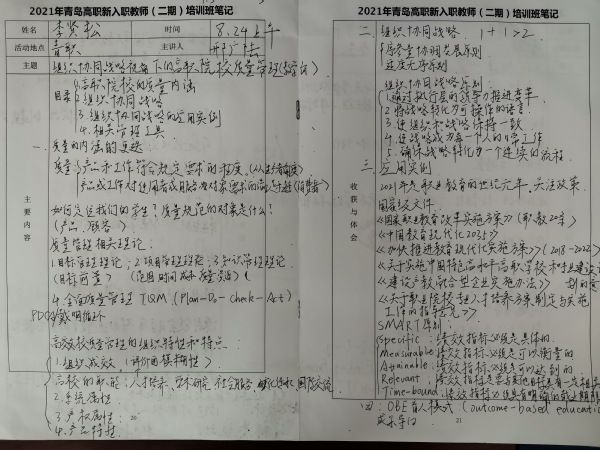 2021年青岛高职新入职教师（二期）培训班笔记
姓名 李贤松 时间 8.24上午
活动地点 青职 主讲人 邢广陆
主题 组织协同战略视角下的高职院校质量管理
主要内容
目录 1.高职院校的质量内涵
2.组织协同战略
3.组织协同战略的应用实例
4.相关管理工具
一、质量的内涵的变迁
质量：产品和工作符合规定要求的程度（从生产者角度）
产品或工作对使用者或用户
如何定位我们的学生？质量规范的对象是什么？
（产品、顾客）
质量管理相关理论：
1.目标管理理论；2.项目管理理论；3.知识管理理论
（范围 时间 成本 质量
4.全面质量管理 TQM（Plan-Do-Check-Act）
PDCA
高效校质量管理的组织特性和特点：
1.组织成效（评价的模糊性）
高校的职能：人才培养、科学研究、社会服务、国际交流
2.系统属性
3.产权属性
4.产品特性
20
2021年青岛高职新入职教师（二期）培训班笔记
收获与体会
二. 组织协同战略. 1+1>2.
协同发展原则
组织协同战略原则
(1.通过执行层的领导力推进变革
2.将战略转化为可操作的语言
3.使组织和战略保持一致
4.使战略成为每一个人的日常工作
5.确保战略转化为一个连续的流程
三. 应用实例
2021年是职业教育的世纪元年，关注政策
国家级文件.
《国家职业教育改革实施方案》（职教20条）
《中国教育现代化2035》
《加快推进教育现代化实施方案》（2018-2022）
《关于实施中国特色高水平高职学校和专业建设计划的意见》
《建设产教融合型企业实施办法》
《关于职业院校专业人才培养方案制定与实施
工作的指导意见》
SMART原则：
Specific：绩效指标必须是具体的.
Measurable：绩效指标必须是可以衡量的
Attainable：绩效指标必须是可以达到的
Relevant：绩效指标是要与其他目标具有一定相关
Time-bound：绩效指标必须具有明确的截止期限
四：OBE育人模式（outcome-based education
成果导向
21